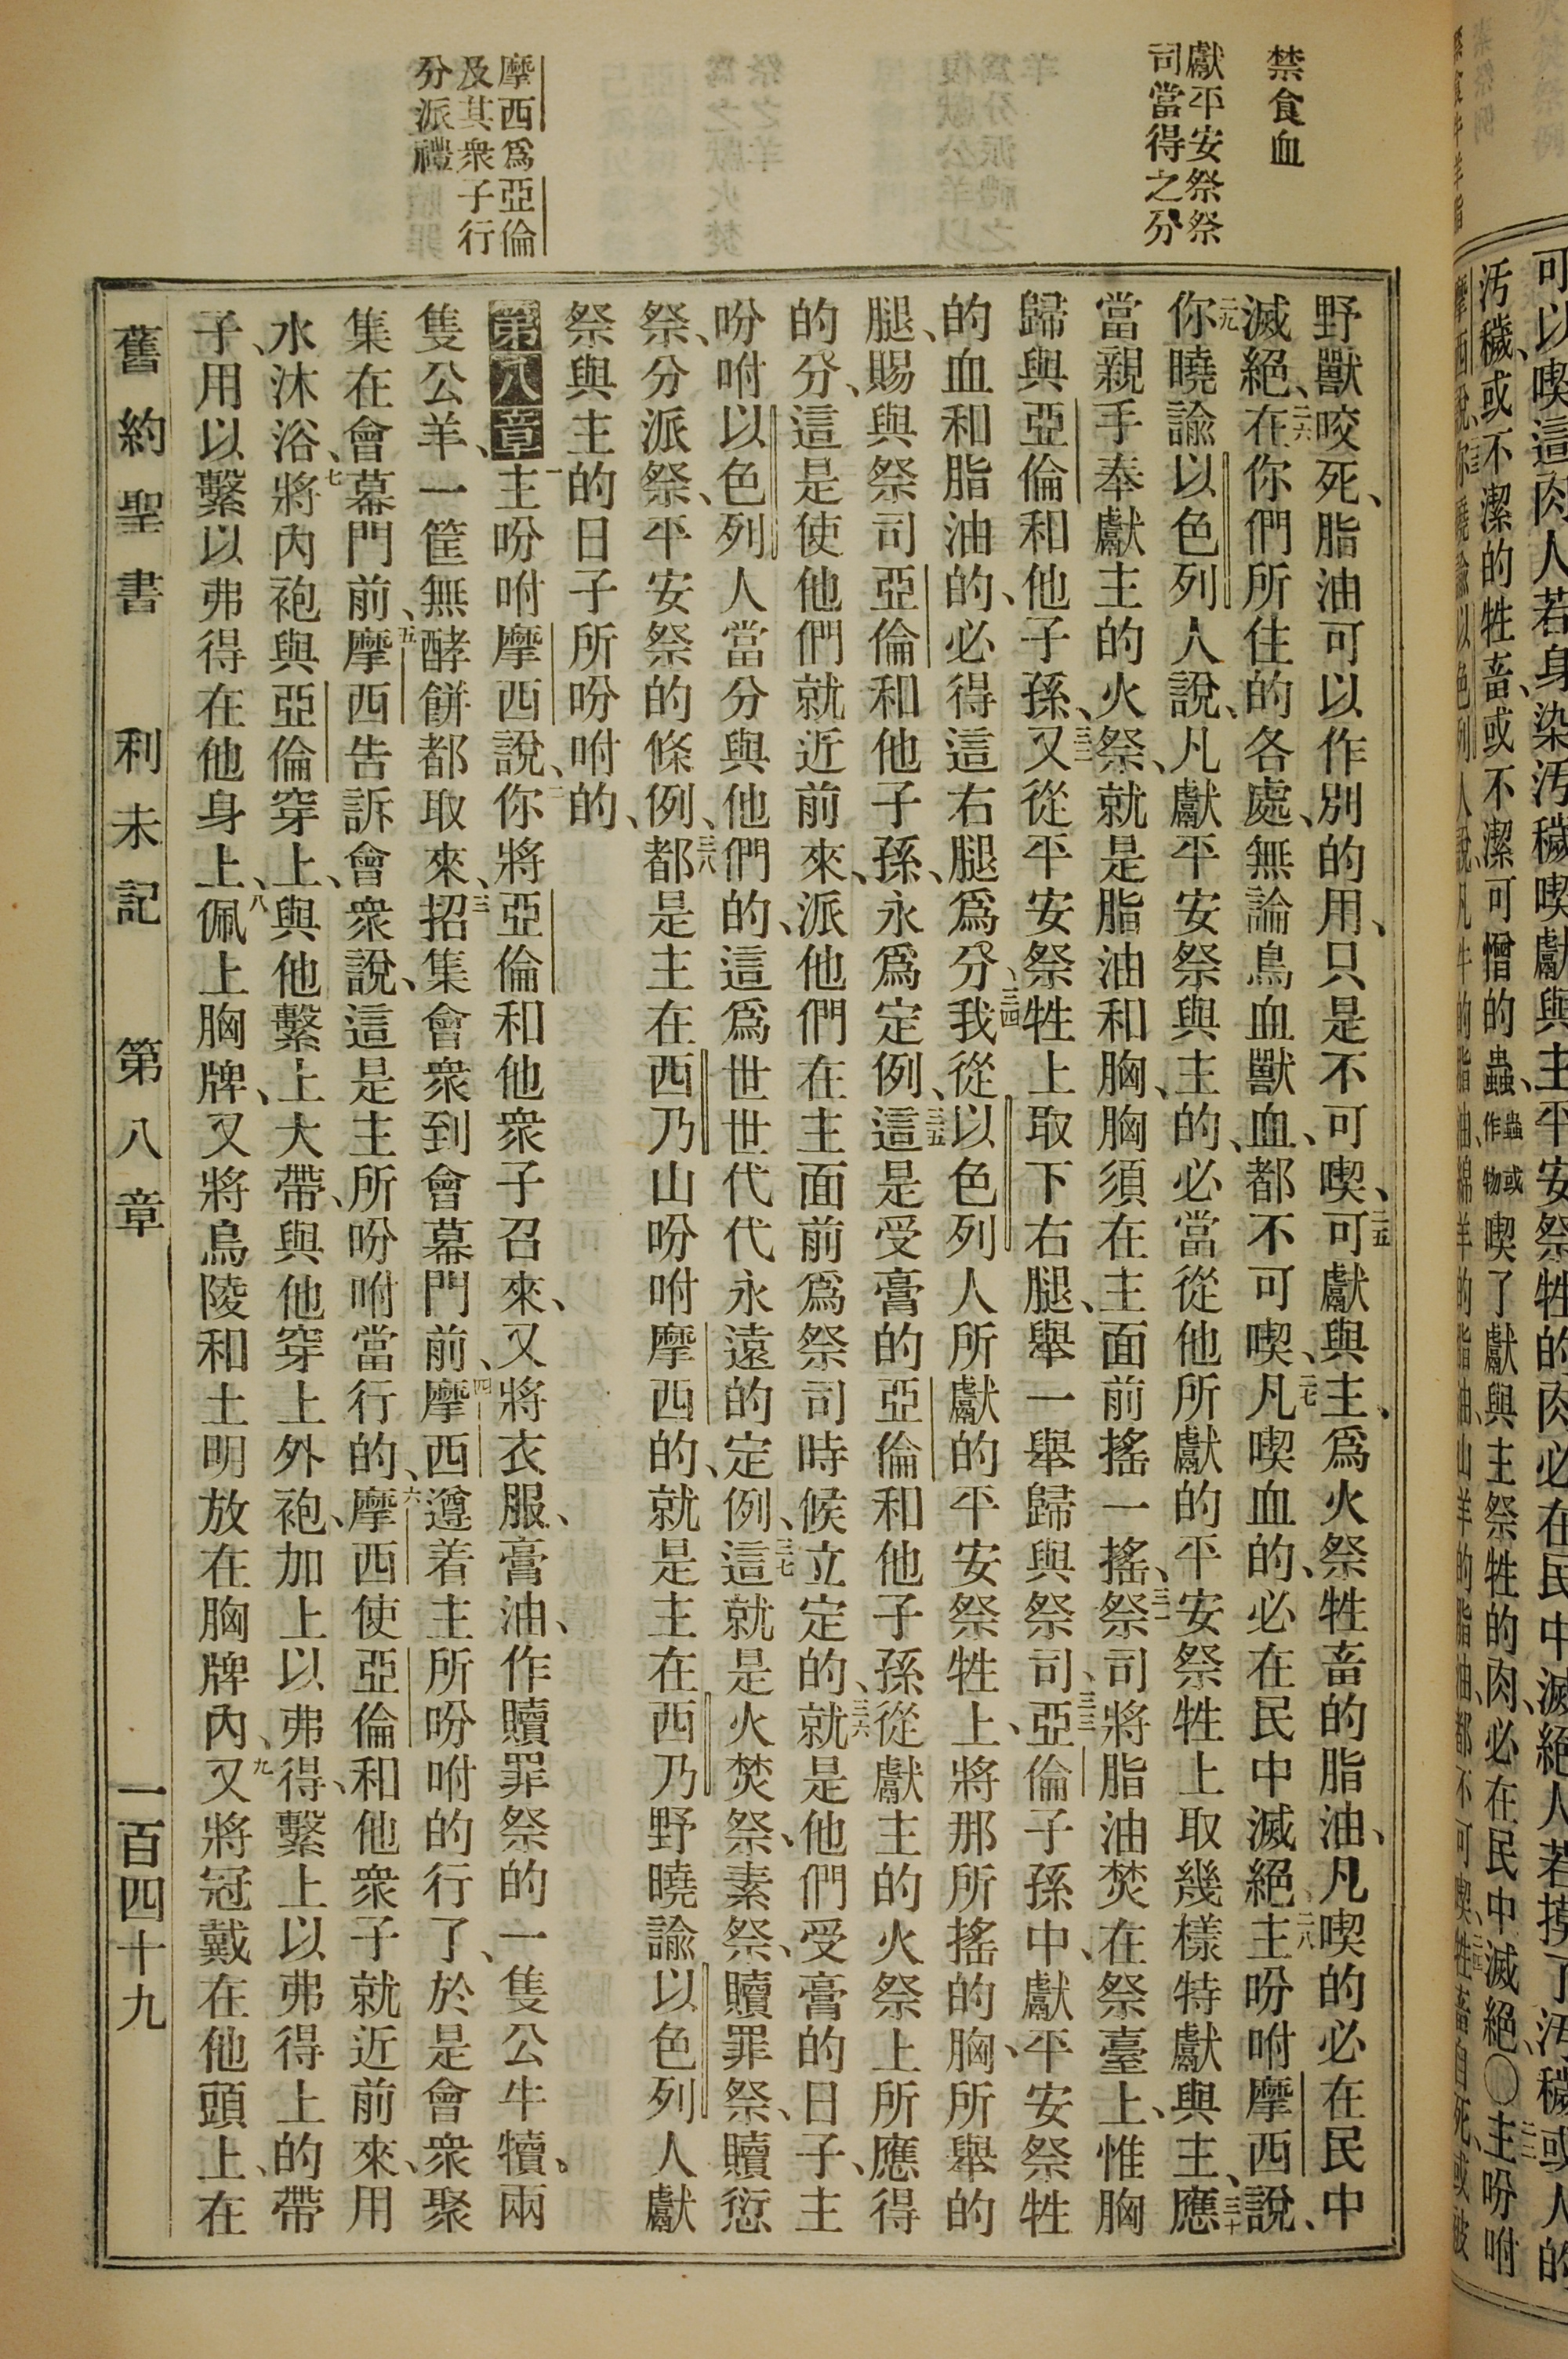 可以喫這肉人若身染污穢喫獻與主平安祭牲的肉必在民中滅絕人若摸了污穢或人的
污穢、或不潔的牲畜、或不潔可憎的蟲、蟲或作物喫了獻與主祭牲的肉、必在民中滅絕、〇主吩咐
摩西說、你曉諭以色列人說、凡牛的脂油、綿羊的脂油、山羊的脂油、都不可喫、牲畜自死、或被
禁食血
獻平安祭祭
司當得之分
摩西爲亞倫
及其衆子行
分派禮
野獸咬死、脂油可以作別的用、只是不可喫、二五可獻與主、爲火祭牲畜的脂油、凡喫的必在民中
滅絕、二六在你們所住的各處、無論鳥血獸血、都不可喫、二七凡喫血的、必在民中滅絕、二八主吩咐摩西說、
二九你曉諭以色列人說、凡獻平安祭與主的、必當從他所獻的平安祭牲上取幾樣特獻與主、三十應
當親手奉獻主的火祭、就是脂油和胸、胸須在主面前搖一搖、三一祭司將脂油焚在祭臺上、惟胸
歸與亞倫和他子孫、三二又從平安祭牲上取下右腿、舉一舉歸與祭司、三三亞倫子孫中、獻平安祭牲
的血和脂油的、必得這右腿爲分、三四我從以色列人所獻的平安祭牲上、將那所搖的胸、所舉的
腿、賜與祭司亞倫和他子孫、永爲定例、三五這是受膏的亞倫和他子孫從獻主的火祭上所應得
的分、這是使他們就近前來、派他們在主面前爲祭司時候立定的、三六就是他們受膏的日子、主
吩咐以色列人當分與他們的、這爲世世代代永遠的定例、三七這就是火焚祭、素祭、贖罪祭、贖愆
祭、分派祭、平安祭的條例、三八都是主在西乃山吩咐摩西的、就是主在西乃野曉諭以色列人獻
祭與主的日子所吩咐的、
第八章一主吩咐摩西說、二你將亞倫和他衆子召來、又將衣服、膏油、作贖罪祭的一隻公牛犢。兩
隻公羊、一筐無酵餅都取來、三招集會衆到會幕門前、四摩西遵着主所吩咐的行了、於是會衆聚
集在會幕門前、五摩西告訴會衆說、這是主所吩咐當行的、六摩西使亞倫和他衆子就近前來、用
水沐浴、七將內袍與亞倫穿上、與他繫上大帶、與他穿上外袍、加上以弗得、繫上以弗得上的帶
子、用以繫以弗得在他身上、八佩上胸牌、又將烏陵和土明放在胸牌內、九又將冠戴在他頭上、在
舊約聖書　利未記　第八章　一百四十九